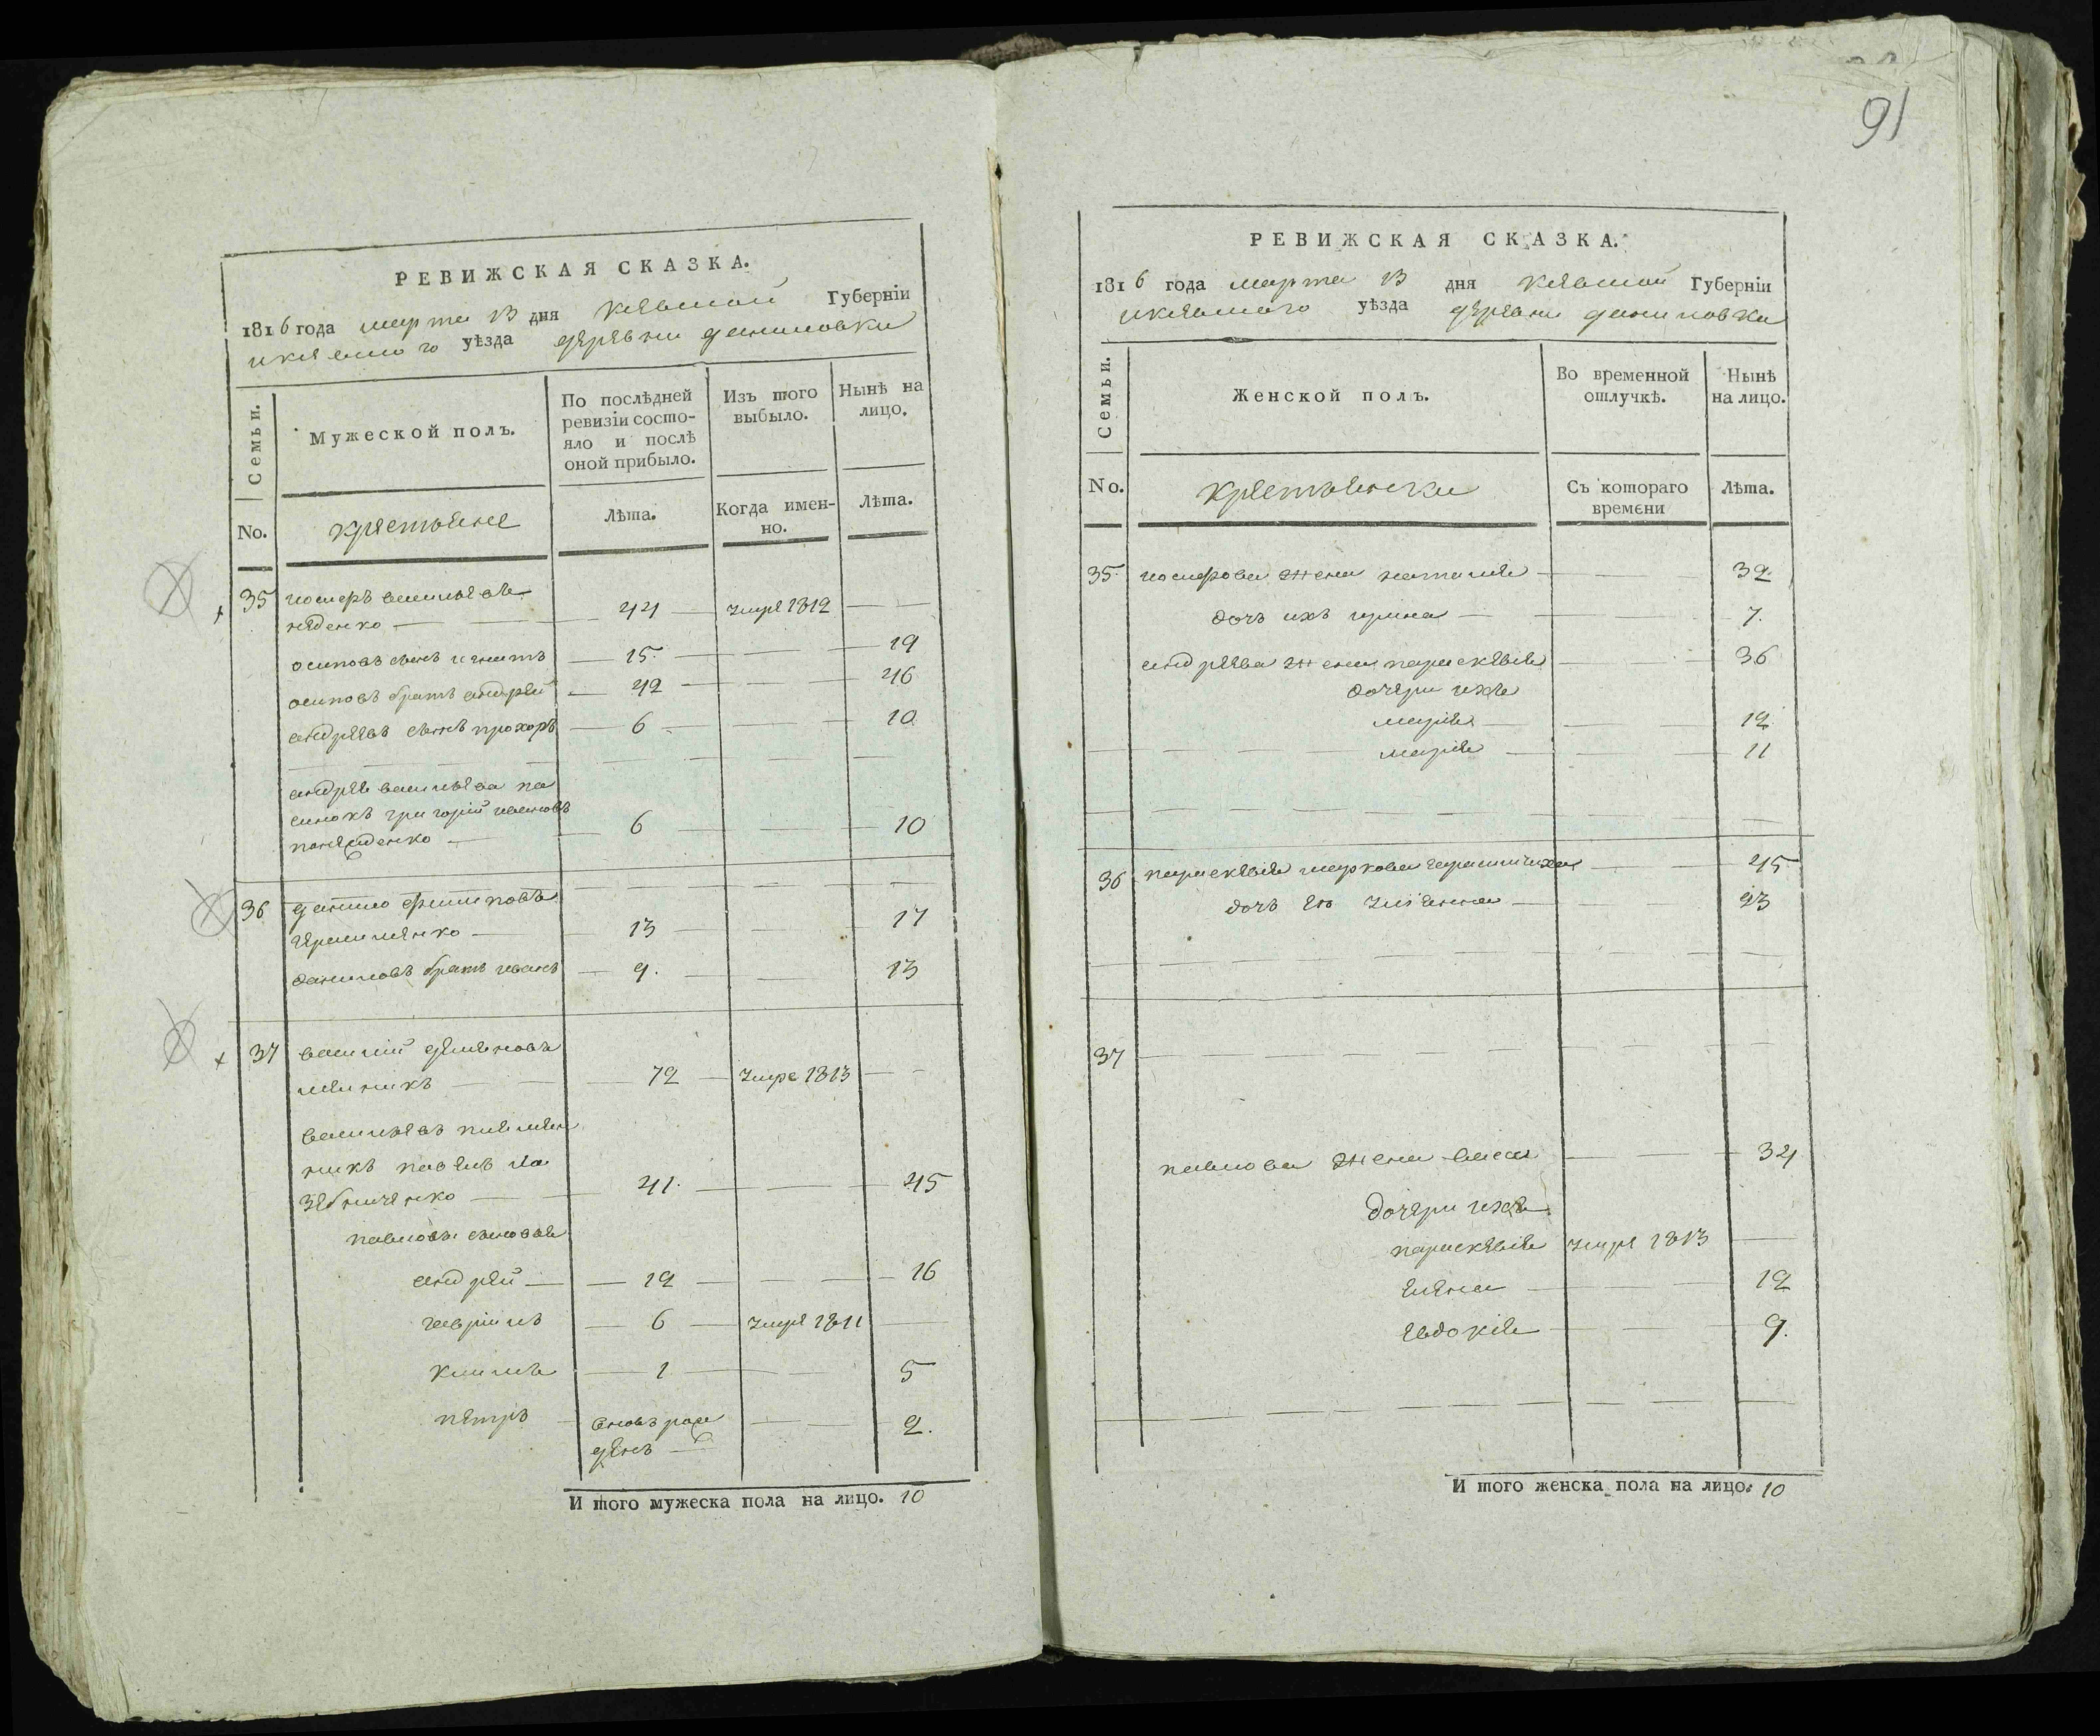 91
РЕВИЖСКАЯ СКАЗКА.
1816 года марта 13 дня киевской Губерніи
икиевского уѣзда деревни даниловки
Семьи.
Мужеской полъ.
По послѣдней ревизіи состо-
яло и послѣ
оной прибыло.
Изъ того
выбыло.
Нынѣ на
лицо.
No.
крестьяне
Лѣта.
Когда имен-
но.
Лѣта.
35 иосифъ васильевъ
44 умре 1812
осиповъ сынъ игнатъ 15. 19
осиповъ братъ андрей 42 46
андреевъ сынъ прохоръ 6 10
андрея васильева па
сынокъ григорій ивановъ
6 10
36 данило филиповъ
герасименко 13 17
даниловъ братъ иванъ 9. 13
37 василий демяновъ
мелникъ 72 умре 1813
васильевъ племен
никъ павелъ ко
41. 45
павловы сыновья
андрей 12 16
гаврила 6 умре 1811
климъ 1 5
петръ вновь рож
денъ 2.
И того мужеска пола на лицо. 10
РЕВИЖСКАЯ СКАЗКА.
1816 года марта 13 дня киевской Губерніи
икиевского уѣзда деревни даниловки
Семьи.
Женской полъ.
Во временной
отлучкѣ.
Нынѣ
на лицо.
No.
крестьянки
Съ котораго
времени
Лѣта.
35. иосифова жена наталия 32
дочь ихъ ирина 7.
андреева жена параскевия 36
дочери ихъ
мария 12.
мария 11
36 параскевия маркова 45
дочь ея улияна 23
37
павлова жена васа 34
дочери ихъ
параскевия умре 1813
елена 12
евдокия 9.
И того женска пола на лицо: 10